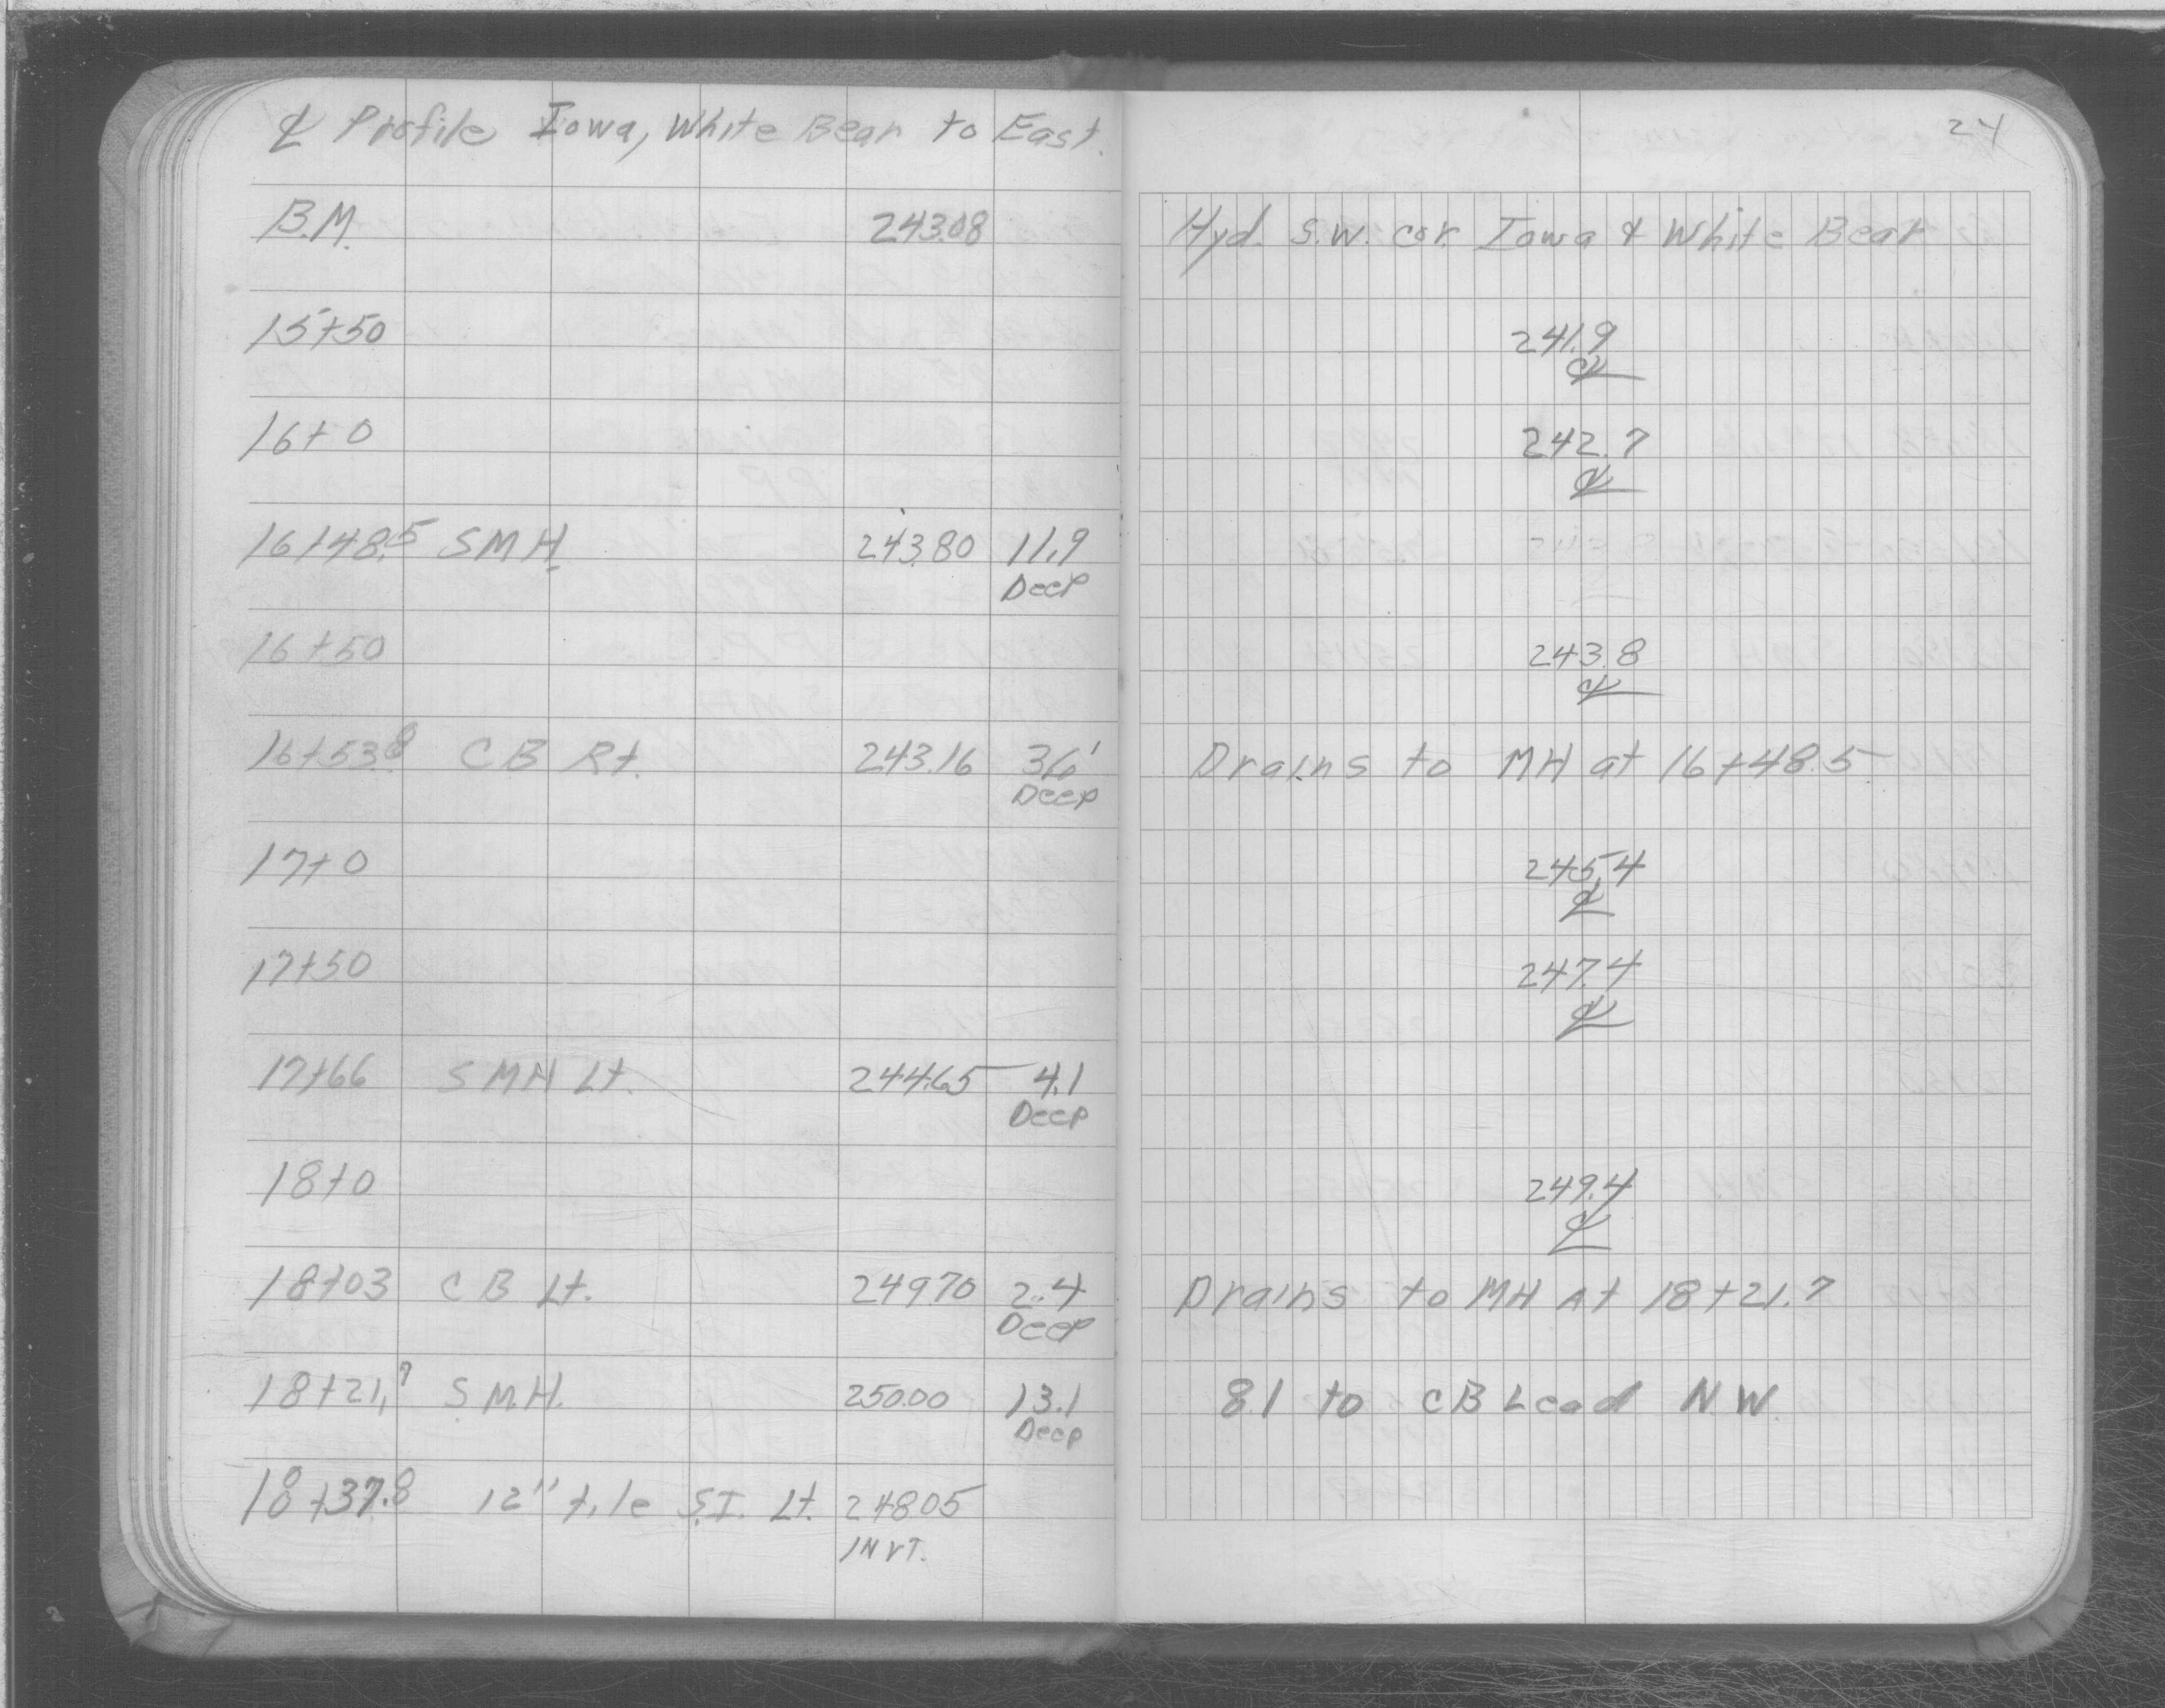 ℄ Profile Iowa, White Bear to East.
24
B.M. 243.08 Hyd. S.W. cor. Iowa & White Bear
15+50 241.9
℄
16+0 242.7
℄
16+48.5 SMH. 243.80 11.9
Deep
16+50 243.8
℄
16+53.8 CB Rt. 243.16 3.6' Drains to MH at 16+48.5
Deep
17+0 245.4
℄
17+50 247.4
℄
17+66 SMH Lt. 244.65 4.1
Deep
18+0 249.4
℄
18+03 CB Lt. 249.70 2.4 Drains to MH At 18+21.7
Deep
18+21.7 S.M.H. 250.00 13.1 8.1 to CB Lead N.W.
Deep
18+37.8 12" tile S.I. Lt. 248.05
INVT.